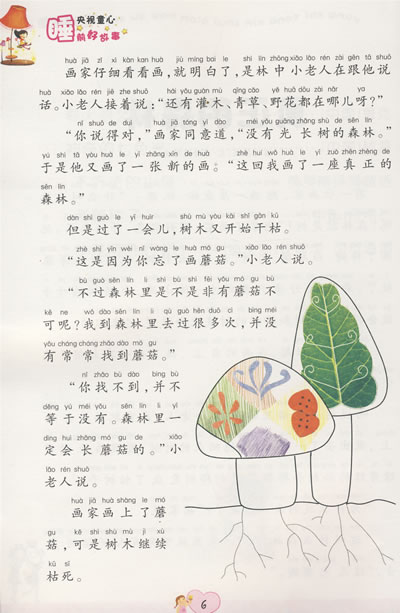 央视童心
睡前好故事
huà jiā zǐ xì kàn kan huà jiù míng bai le shì lín zhōng xiǎo lǎo rén zài gēn tā shuō
画家仔细看看画,就明白了,是林中小老人在跟他说
huà xiǎo lǎo rén jiē zhe shuō hái yǒu guàn mù qīng cǎo yě huā dōu zài nǎr ya
话。小老人接着说:“还有灌木、青草、野花都在哪儿呀?”
nǐ shuō de duì huà jiā tóng yì dào méi yǒu guāng zhǎng shù de sēn lín
“你说得对,”画家同意道,“没有光长树的森林。”
yú shì tā yòu huà le yì zhāng xīn de huà zhè huí wǒ huà le yí zuò zhēn zhèng de
于是他又画了一张新的画。“这回我画了一座真正的
sēn lín
森林。”
dàn shì guò le yí huìr shù mù yòu kāi shǐ gān kū
但是过了一会儿,树木又开始干枯。
zhè shì yīn wèi nǐ wàng le huà mó gu xiǎo lǎo rén shuō
“这是因为你忘了画蘑菇。”小老人说。
bú guò sēn lín li shì bu shì fēi yǒu mó gu bù
“不过森林里是不是非有蘑菇不
kě ne wǒ dào sēn lín li qù guò hěn duō cì bìng méi
可呢?我到森林里去过很多次,并没
yǒu cháng cháng zhǎo dào mó gu
有常常找到蘑菇。”
nǐ zhǎo bú dào bìng bù
“你找不到,并不
děng yú méi yǒu sēn lín li yí
等于没有。森林里一
dìng huì zhǎng mó gu de xiǎo
定会长蘑菇的。”小
lǎo rén shuō
老人说。
huà jiā huà shàng le mó
画家画上了蘑
gu kě shì shù mù jì xù
菇,可是树木继续
kū sǐ
枯死。
6